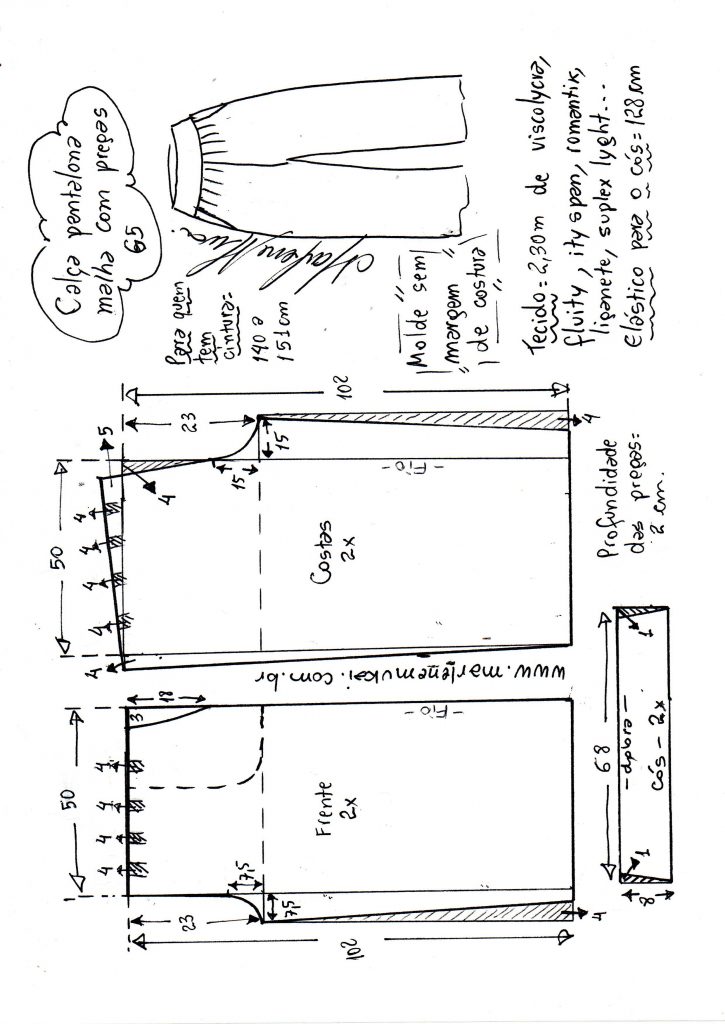 Calça pantalona
malha com preças
65
Para quem
tem
cintura=
140 a
151cm
Molde sem
margem
de costura
Tecido = 2,30m de viscolycra,
fluity, ity span, romantix,
liganete, suplex lyght...
Elástico para o cós = 128 cm
102
23
5
15
15
4
50
4
4
4
4
4
4
-Fio-
Costas
2x
Profundidade
das preças=
2 cm.
www.marlenemukai.com.br
18
3
50
4
4
4
4
-Fio-
Frente
2x
7,5
7,5
23
102
4
68
1
1
-dobra-
cós - 2x
8